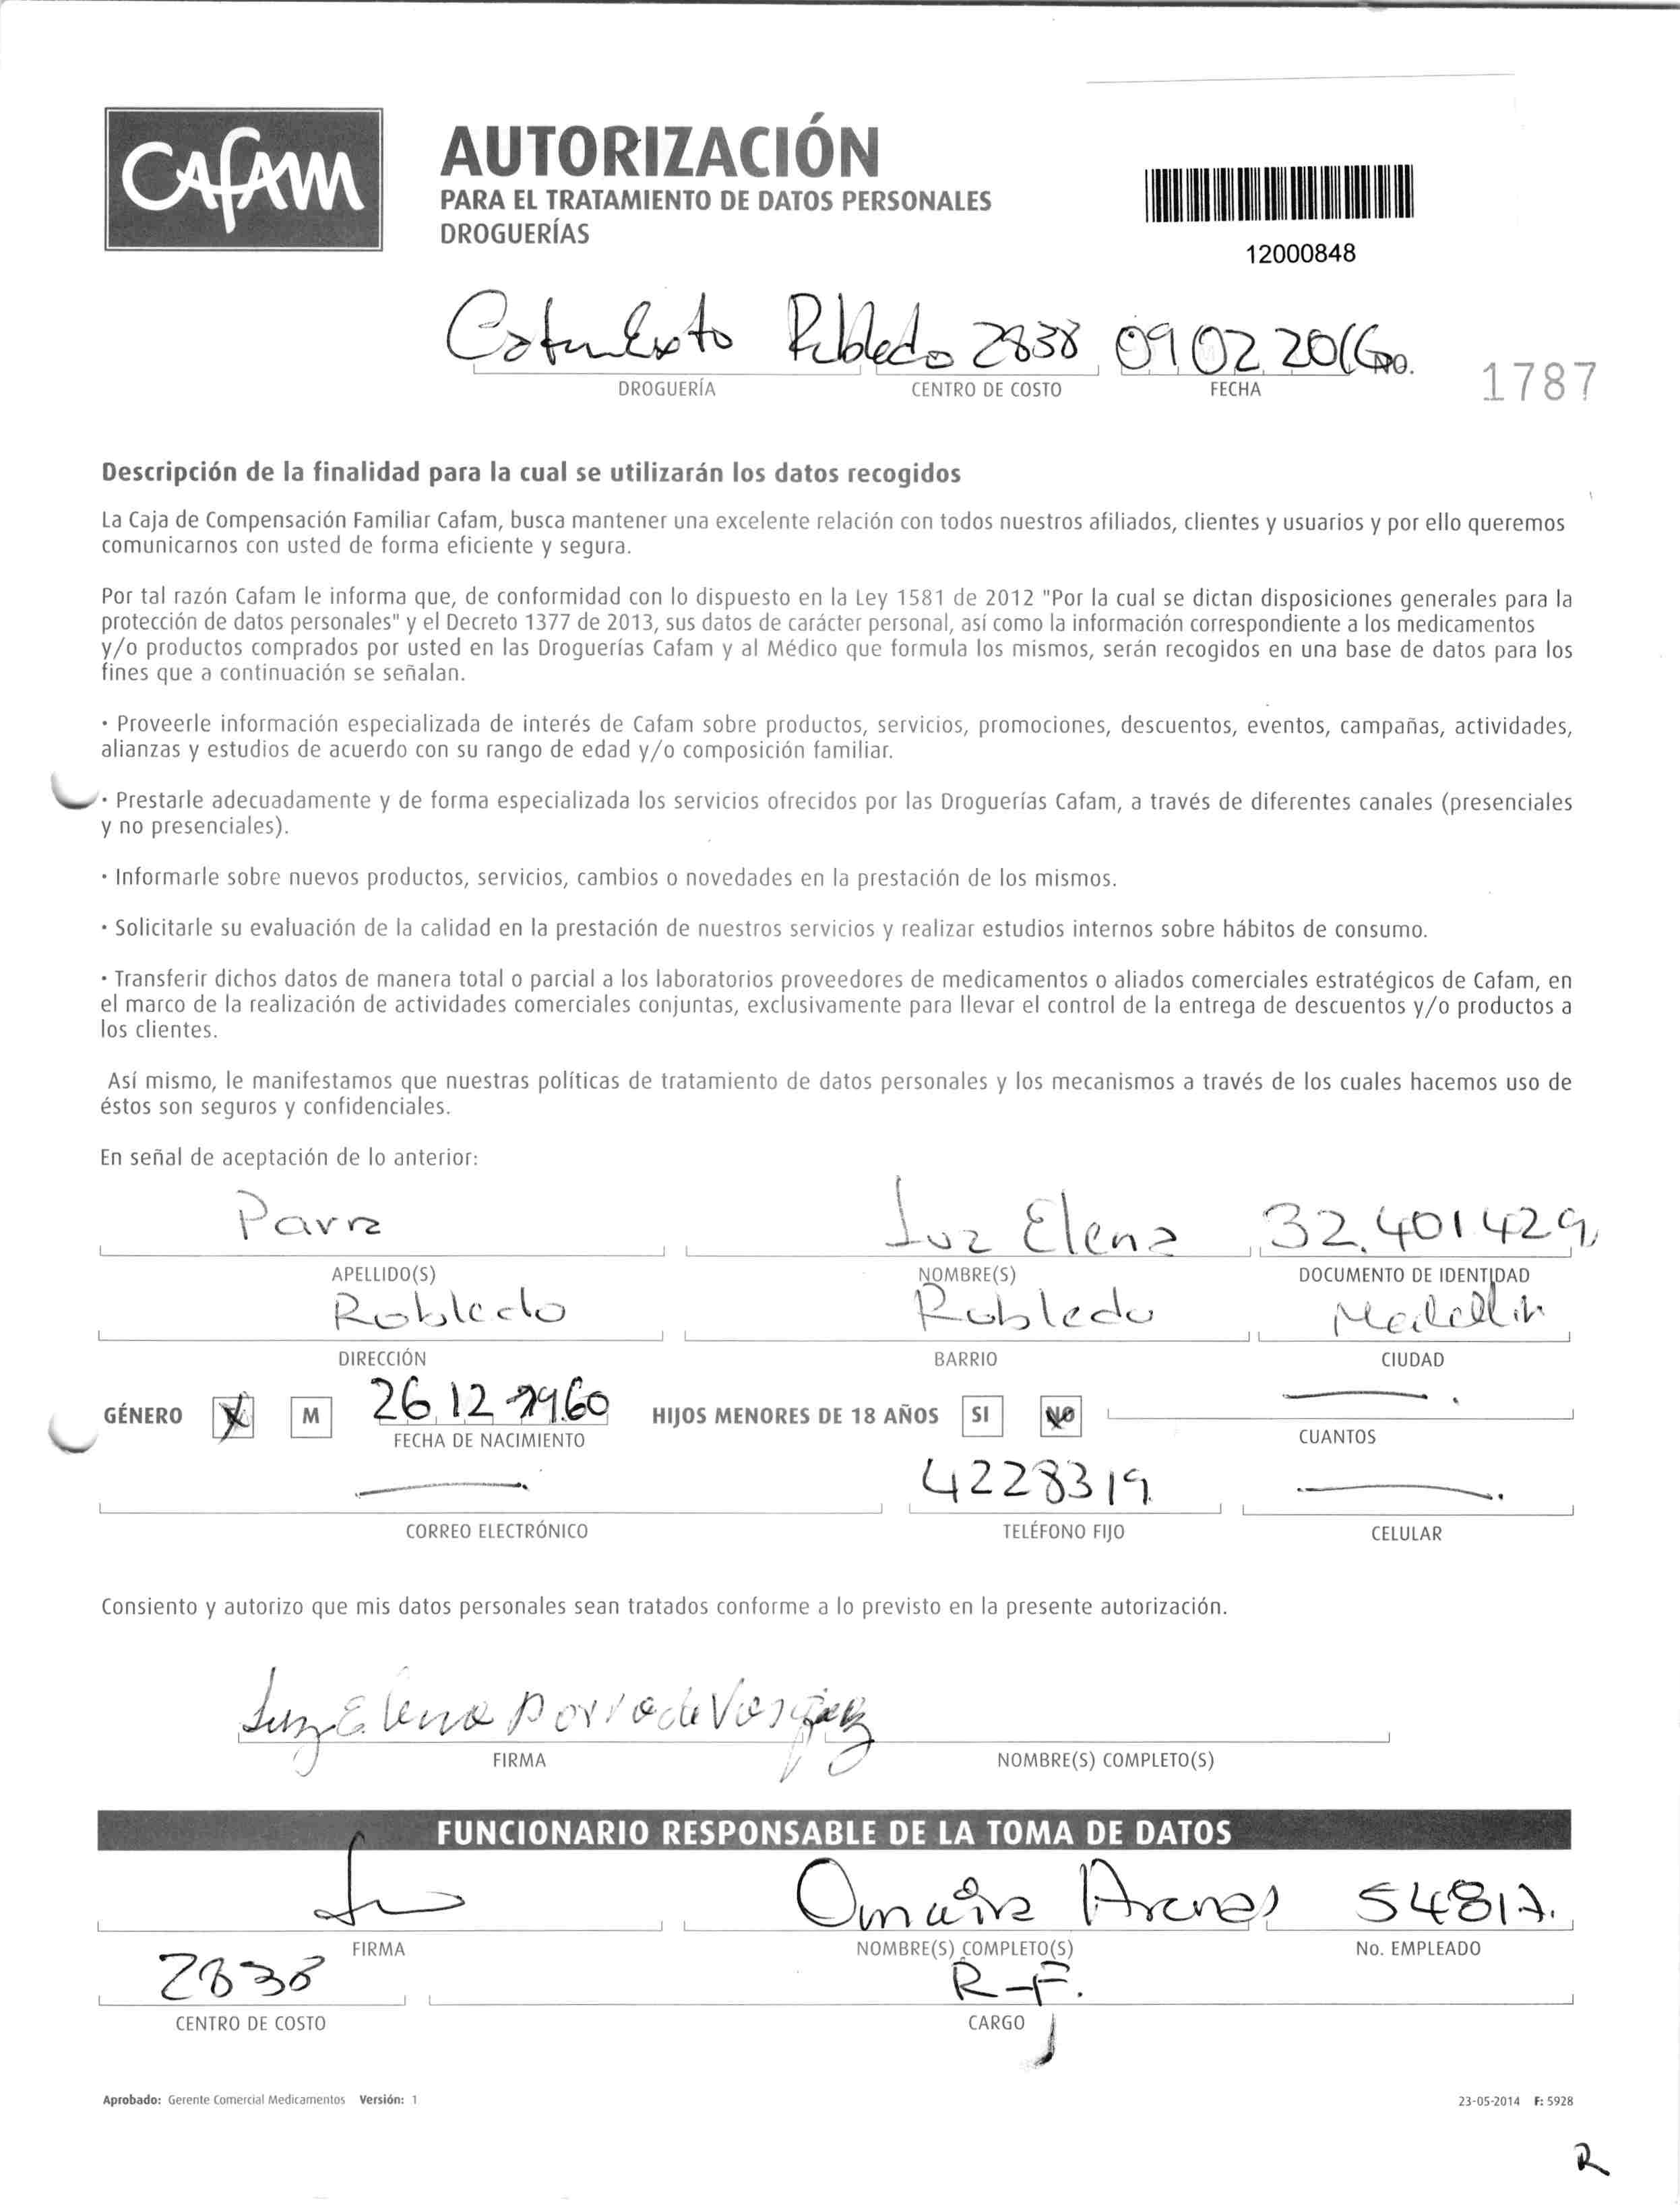 CAFAM
AUTORIZACIÓN
PARA EL TRATAMIENTO DE DATOS PERSONALES
DROGUERÍAS
12000848
Robledo 2838 09 02 2016 No. 1787
DROGUERÍA CENTRO DE COSTO FECHA
Descripción de la finalidad para la cual se utilizarán los datos recogidos
La Caja de Compensación Familiar Cafam, busca mantener una excelente relación con todos nuestros afiliados, clientes y usuarios y por ello queremos
comunicarnos con usted de forma eficiente y segura.
Por tal razón Cafam le informa que, de conformidad con lo dispuesto en la Ley 1581 de 2012 "Por la cual se dictan disposiciones generales para la
protección de datos personales" y el Decreto 1377 de 2013, sus datos de carácter personal, así como la información correspondiente a los medicamentos
y/o productos comprados por usted en las Droguerías Cafam y al Médico que formula los mismos, serán recogidos en una base de datos para los
fines que a continuación se señalan.
· Proveerle información especializada de interés de Cafam sobre productos, servicios, promociones, descuentos, eventos, campañas, actividades,
alianzas y estudios de acuerdo con su rango de edad y/o composición familiar.
· Prestarle adecuadamente y de forma especializada los servicios ofrecidos por las Droguerías Cafam, a través de diferentes canales (presenciales
y no presenciales).
· Informarle sobre nuevos productos, servicios, cambios o novedades en la prestación de los mismos.
· Solicitarle su evaluación de la calidad en la prestación de nuestros servicios y realizar estudios internos sobre hábitos de consumo.
· Transferir dichos datos de manera total o parcial a los laboratorios proveedores de medicamentos o aliados comerciales estratégicos de Cafam, en
el marco de la realización de actividades comerciales conjuntas, exclusivamente para llevar el control de la entrega de descuentos y/o productos a
los clientes.
Así mismo, le manifestamos que nuestras políticas de tratamiento de datos personales y los mecanismos a través de los cuales hacemos uso de
éstos son seguros y confidenciales.
En señal de aceptación de lo anterior:
Parra Luz Elena 32.401429
APELLIDO(S) NOMBRE(S) DOCUMENTO DE IDENTIDAD
Robledo Robledo Medellin
DIRECCIÓN BARRIO CIUDAD
GÉNERO X M 26 12 1960 HIJOS MENORES DE 18 AÑOS SI NO
FECHA DE NACIMIENTO CUANTOS
4228319
CORREO ELECTRÓNICO TELÉFONO FIJO CELULAR
Consiento y autorizo que mis datos personales sean tratados conforme a lo previsto en la presente autorización.
Luz Elena Parra de Vasquez
FIRMA NOMBRE(S) COMPLETO(S)
FUNCIONARIO RESPONSABLE DE LA TOMA DE DATOS
Omaira Arenas 54817.
FIRMA NOMBRE(S) COMPLETO(S) No. EMPLEADO
2838 R-F.
CENTRO DE COSTO CARGO
Aprobado: Gerente Comercial Medicamentos Versión: 1 23-05-2014 F: 5928
R